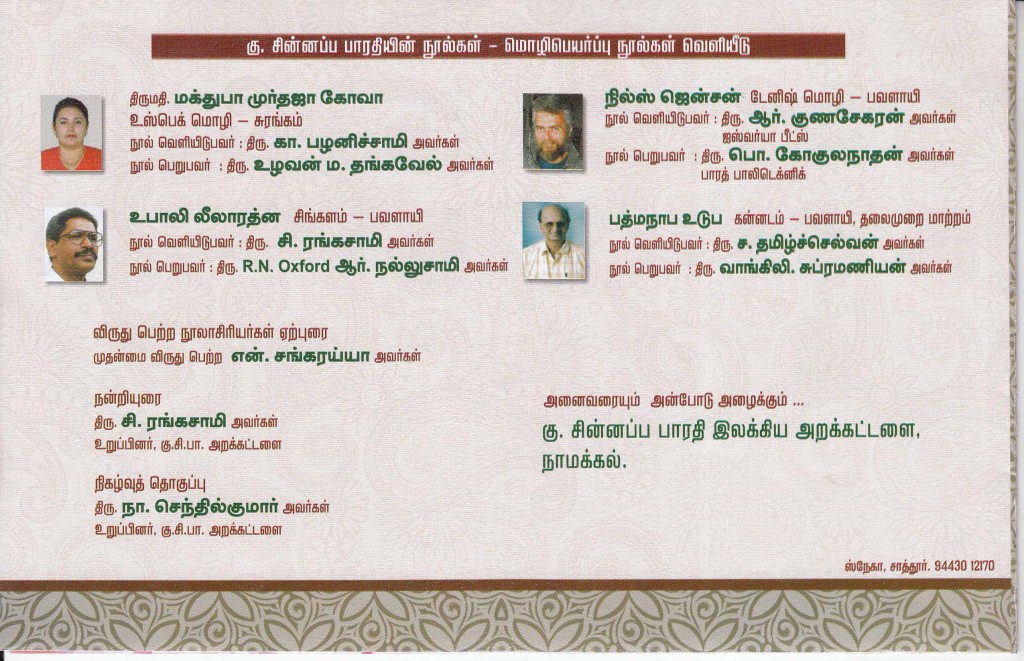 கு. சின்னப்ப பாரதியின் நூல்கள் – மொழிபெயர்ப்பு நூல்கள் வெளியீடு
திருமதி. மக்துபா முர்தஜா கோவா
உஸ்பெக் மொழி – சுரங்கம்
நூல் வெளியிடுபவர் : திரு. கா. பழனிச்சாமி அவர்கள்
நூல் பெறுபவர் : திரு. உழவன் ம. தங்கவேல் அவர்கள்
நில்ஸ் ஜென்சன் டேனிஷ் மொழி – பவளாயி
நூல் வெளியிடுபவர் : திரு. ஆர். குணசேகரன் அவர்கள்
ஐஸ்வர்யா பீட்ஸ்
நூல் பெறுபவர் : திரு. பொ. கோகுலநாதன் அவர்கள்
பாரத் பாலிடெக்னிக்
உபாலி லீலாரத்ன சிங்களம் – பவளாயி
நூல் வெளியிடுபவர் : திரு. சி. ரங்கசாமி அவர்கள்
நூல் பெறுபவர் : திரு. R.N. Oxford ஆர். நல்லுசாமி அவர்கள்
பத்மநாப உடுப கன்னடம் – பவளாயி, தலைமுறை மாற்றம்
நூல் வெளியிடுபவர் : திரு. ச. தமிழ்ச்செல்வன் அவர்கள்
நூல் பெறுபவர் : திரு. வாங்கிலி. சுப்ரமணியன் அவர்கள்
விருது பெற்ற நூலாசிரியர்கள் ஏற்புரை
முதன்மை விருது பெற்ற என். சங்கரய்யா அவர்கள்
நன்றியுரை
திரு. சி. ரங்கசாமி அவர்கள்
உறுப்பினர், கு.சி.பா. அறக்கட்டளை
நிகழ்வுத் தொகுப்பு
திரு. நா. செந்தில்குமார் அவர்கள்
உறுப்பினர், கு.சி.பா. அறக்கட்டளை
அனைவரையும் அன்போடு அழைக்கும் ...
கு. சின்னப்ப பாரதி இலக்கிய அறக்கட்டளை,
நாமக்கல்.
ஸ்நேகா, சாத்தூர். 94430 12170